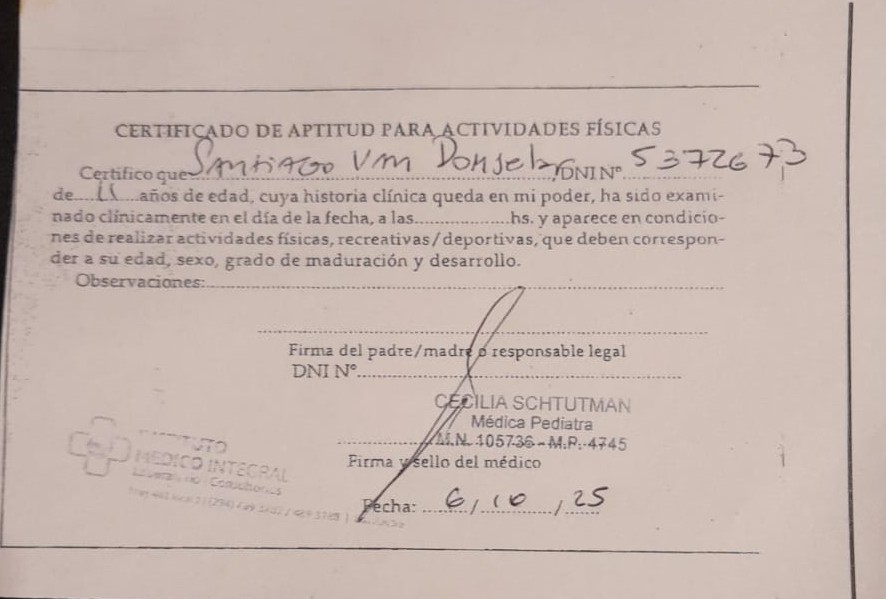 CERTIFICADO DE APTITUD PARA ACTIVIDADES FÍSICAS
Certifico que Santiago Van Donsel DNI N° 53726773
de 11 años de edad, cuya historia clínica queda en mi poder, ha sido exami-
nado clínicamente en el día de la fecha, a las..................hs. y aparece en condicio-
nes de realizar actividades físicas, recreativas/deportivas, que deben correspon-
der a su edad, sexo, grado de maduración y desarrollo.
Observaciones:
Firma del padre/madre o responsable legal
DNI N°
CECILIA SCHTUTMAN
Médica Pediatra
M.N. 105736 - M.P. 4745
Firma y sello del médico
INSTITUTO
MEDICO INTEGRAL
Laboratorio | Consultorios
Fecha: 6 / 10 / 25